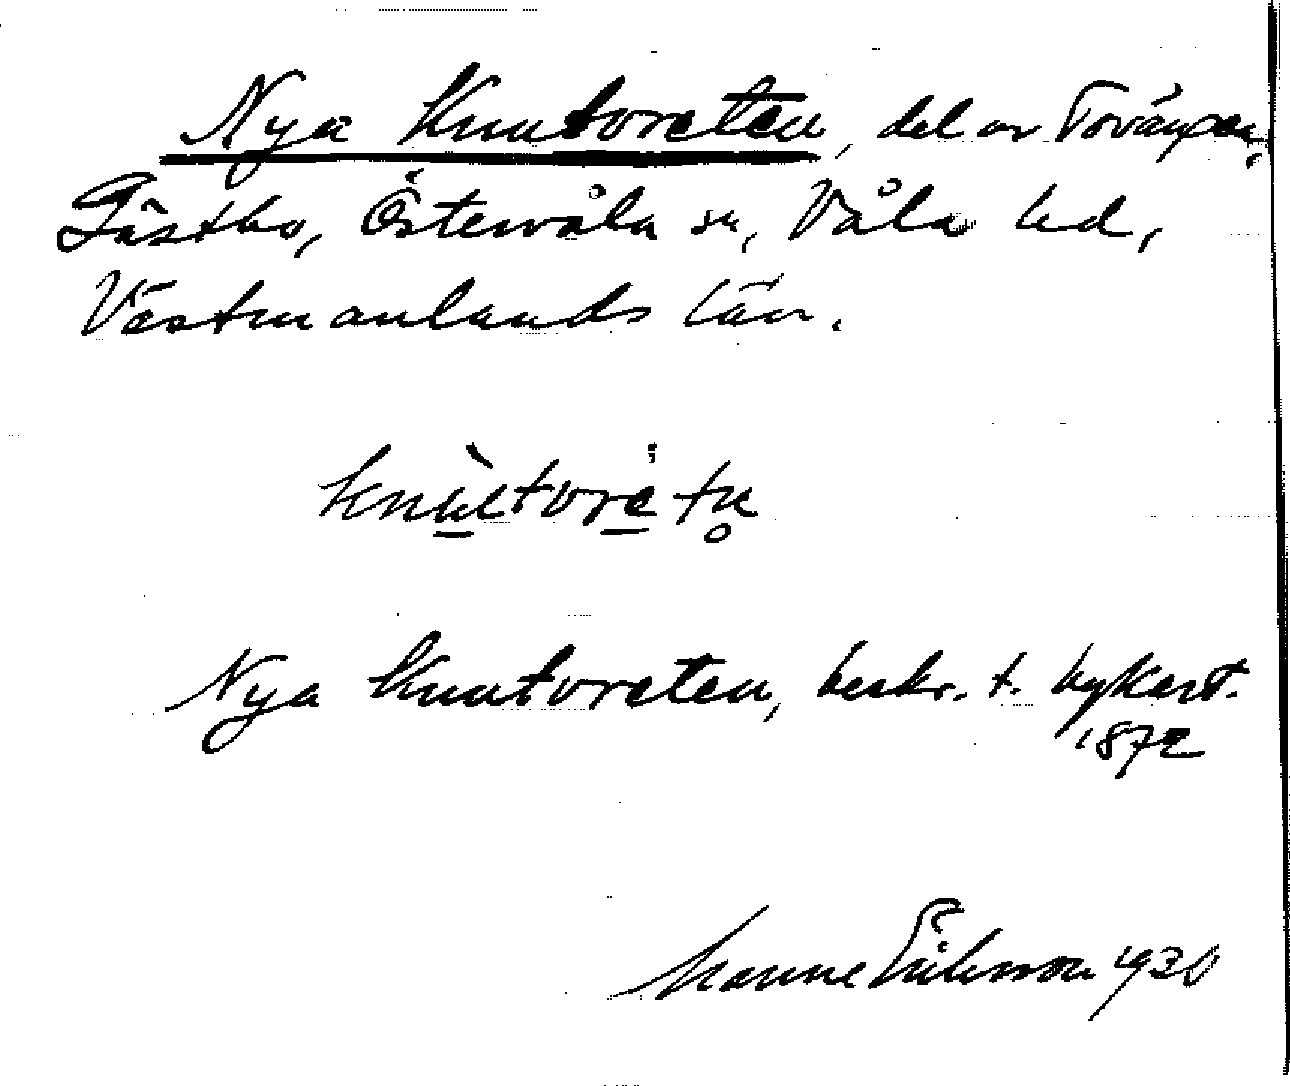 Nya Knutoreten, del av Torängen,
Gästbo, Östervåla sn, Våla hd,
Västmanlands län.
Nya Knutoreten, beskr. t. bykart.
1872
Manne Eriksson 1930